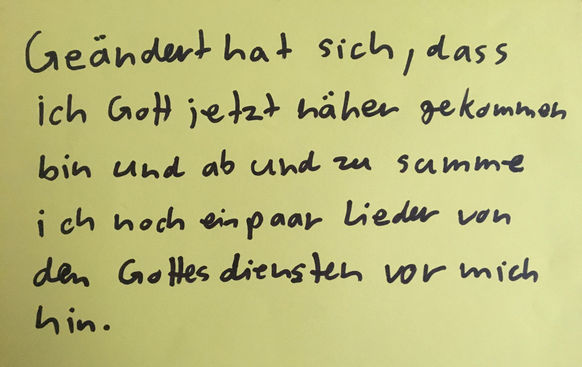 Geändert hat sich, dass
ich Gott jetzt näher gekommen
bin und ab und zu summe
ich noch ein paar Lieder von
den Gottesdiensten vor mich
hin.